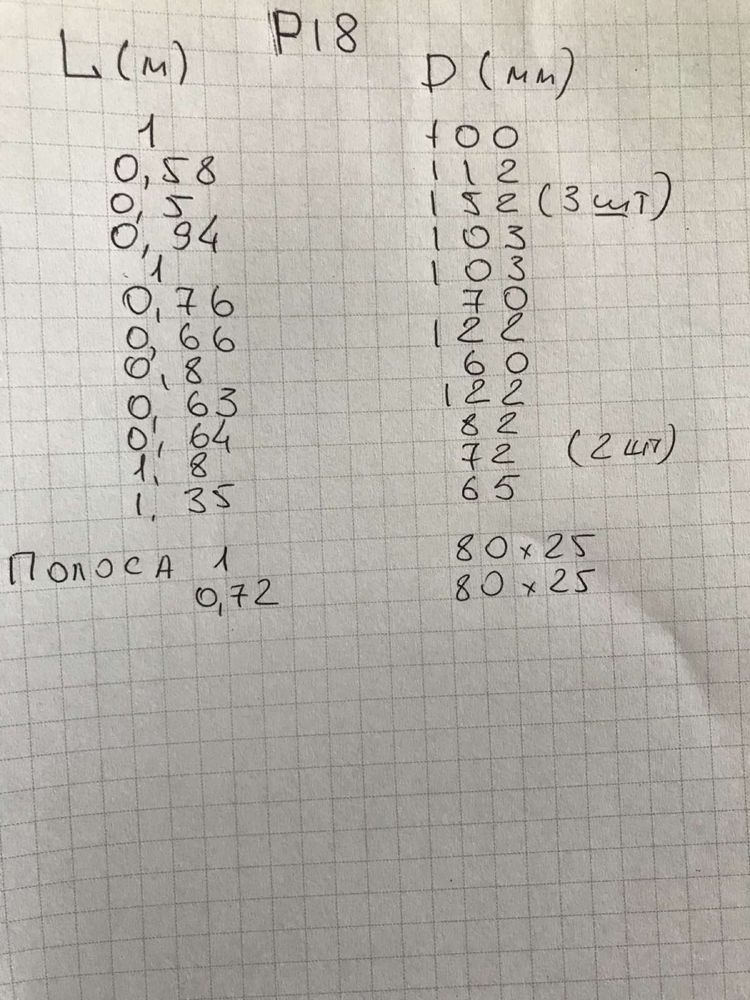 P18
L (м) D (мм)
1 100
0,58 112
0,5 152 (3 шт)
0,94 103
1 103
0,76 70
0,66 122
0,8 60
0,63 122
0,64 82
1,8 72 (2 шт)
1,35 65
Полоса 1 80x25
0,72 80x25